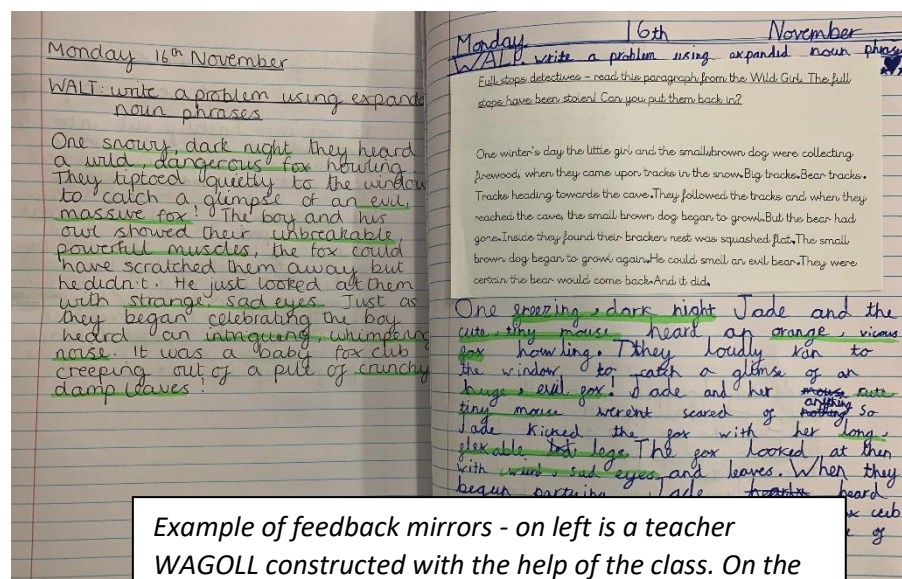 Monday 16th November
WALT: write a problem using expande
noun phrases
One snowy, dark night they heard
a wild, dangerous fox howling.
They tiptoed quietly to the window
to catch a glimpse of an evil,
massive fox! The boy and his
owl showed their unbreakable,
powerful muscles, the fox could
have scratched them away but
he didn't. He just looked at them
with strange, sad eyes. Just as
they began celebrating the boy
heard an intriguing, whimpering
noise. It was a baby fox club
creeping out of a pile of crunchy
damp leaves!
Monday 16th November
WALT. write a problem using expanded noun phrase
Full stops detectives - read this paragraph from the Wild Girl. The full
stops have been stolen! Can you put them back in?
One winter's day the little girl and the small,brown dog were collecting
firewood, when they came upon tracks in the snow.Big tracks.Bear tracks.
Tracks heading towards the cave.They followed the tracks and when they
reached the cave, the small brown dog began to growl.But the bear had
gone.Inside they found their bracken nest was squashed flat.The small
brown dog began to growl again.He could smell an evil bear.They were
certain the bear would come back.And it did.
One greezing, dark night Jade and the
cute, tiny mouse heard an orange, vicous
fox howling. Tthey loudly ran to
the window to catch a glimse of an
huge, evil fox! Jade and her mouse cute
tiny mouse werent scared of nothing anything So
Jade kicked the fox with her long,
flexable legs The fox looked at then
with wierd, sad eyes and leaves. When they
begun partying Jade heard
ox cub
e of
Example of feedback mirrors - on left is a teacher
WAGOLL constructed with the help of the class. On the